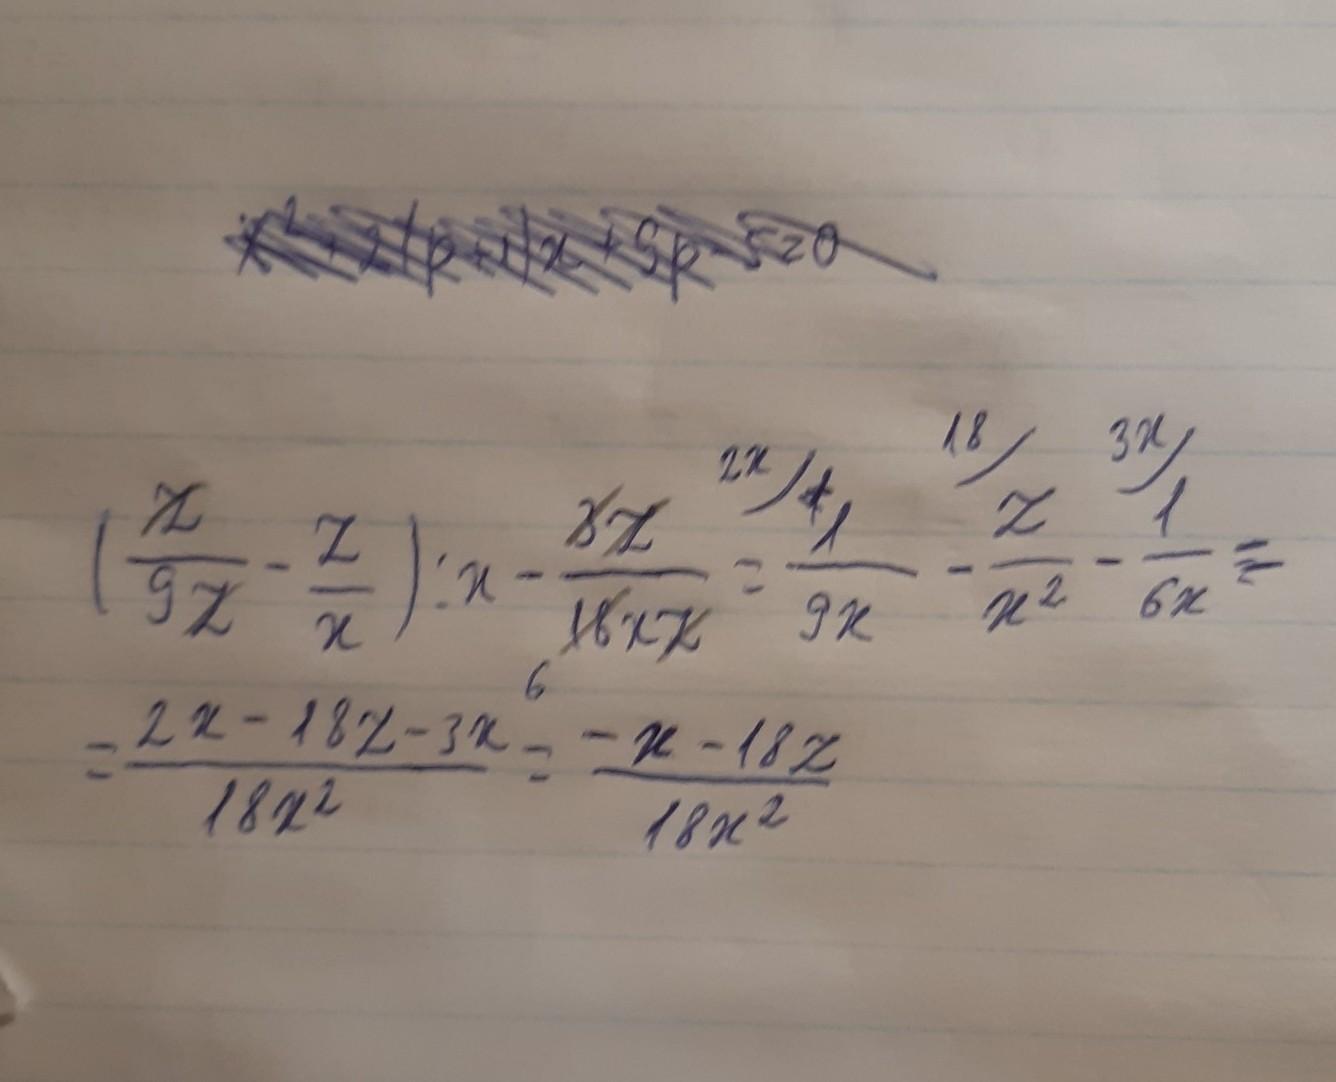 x² + 2(p+1)x + 9p - 5 = 0
(z/9z - z/x) : x - 3z/18xz = 2x/ 1/9x - 18/ z/x² - 3x/ 1/6x =
6
= (2x - 18z - 3x)/18x² = (-x - 18z)/18x²